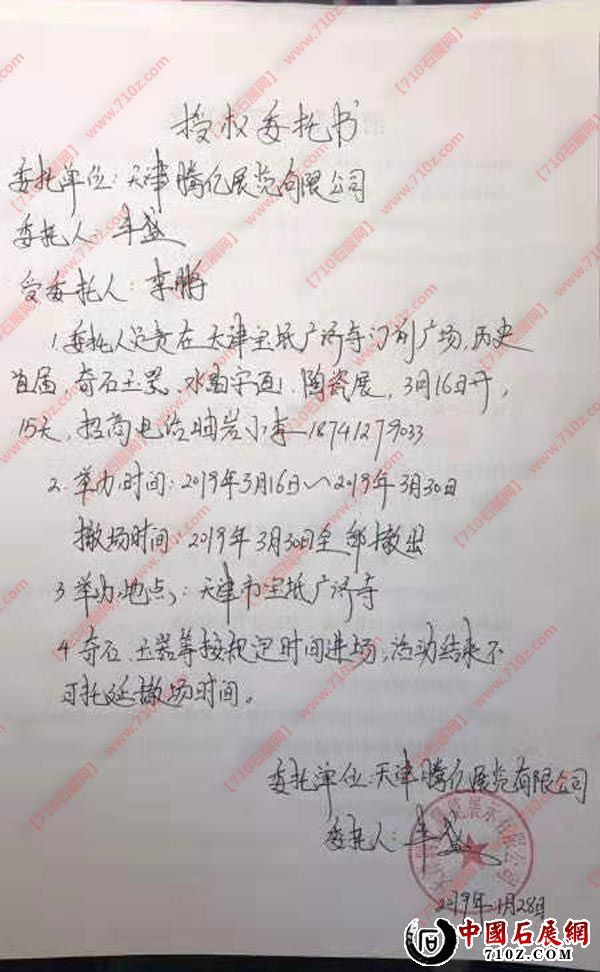 授权委托书
委托单位:天津腾亿展览有限公司
委托人:车盛
受委托人:李鹏
1.委托人员责在天津宝坻广济寺门前广场,历史
首届,奇石玉器、水晶字画、陶瓷展,3月16日开,
15天,招商电话岫岩小李—18741279033
2.举办时间:2019年3月16日~2019年3月30日
撤场时间 2019年3月30日全部撤出
3.举办地点:天津市宝坻广济寺
4.奇石、玉器等按规定时间进场,活动结束不
可托延撤场时间。
委托单位:天津腾亿展览有限公司
委托人:车盛
2019年1月28日
中國石展網
【710石展网】
www.710z.com